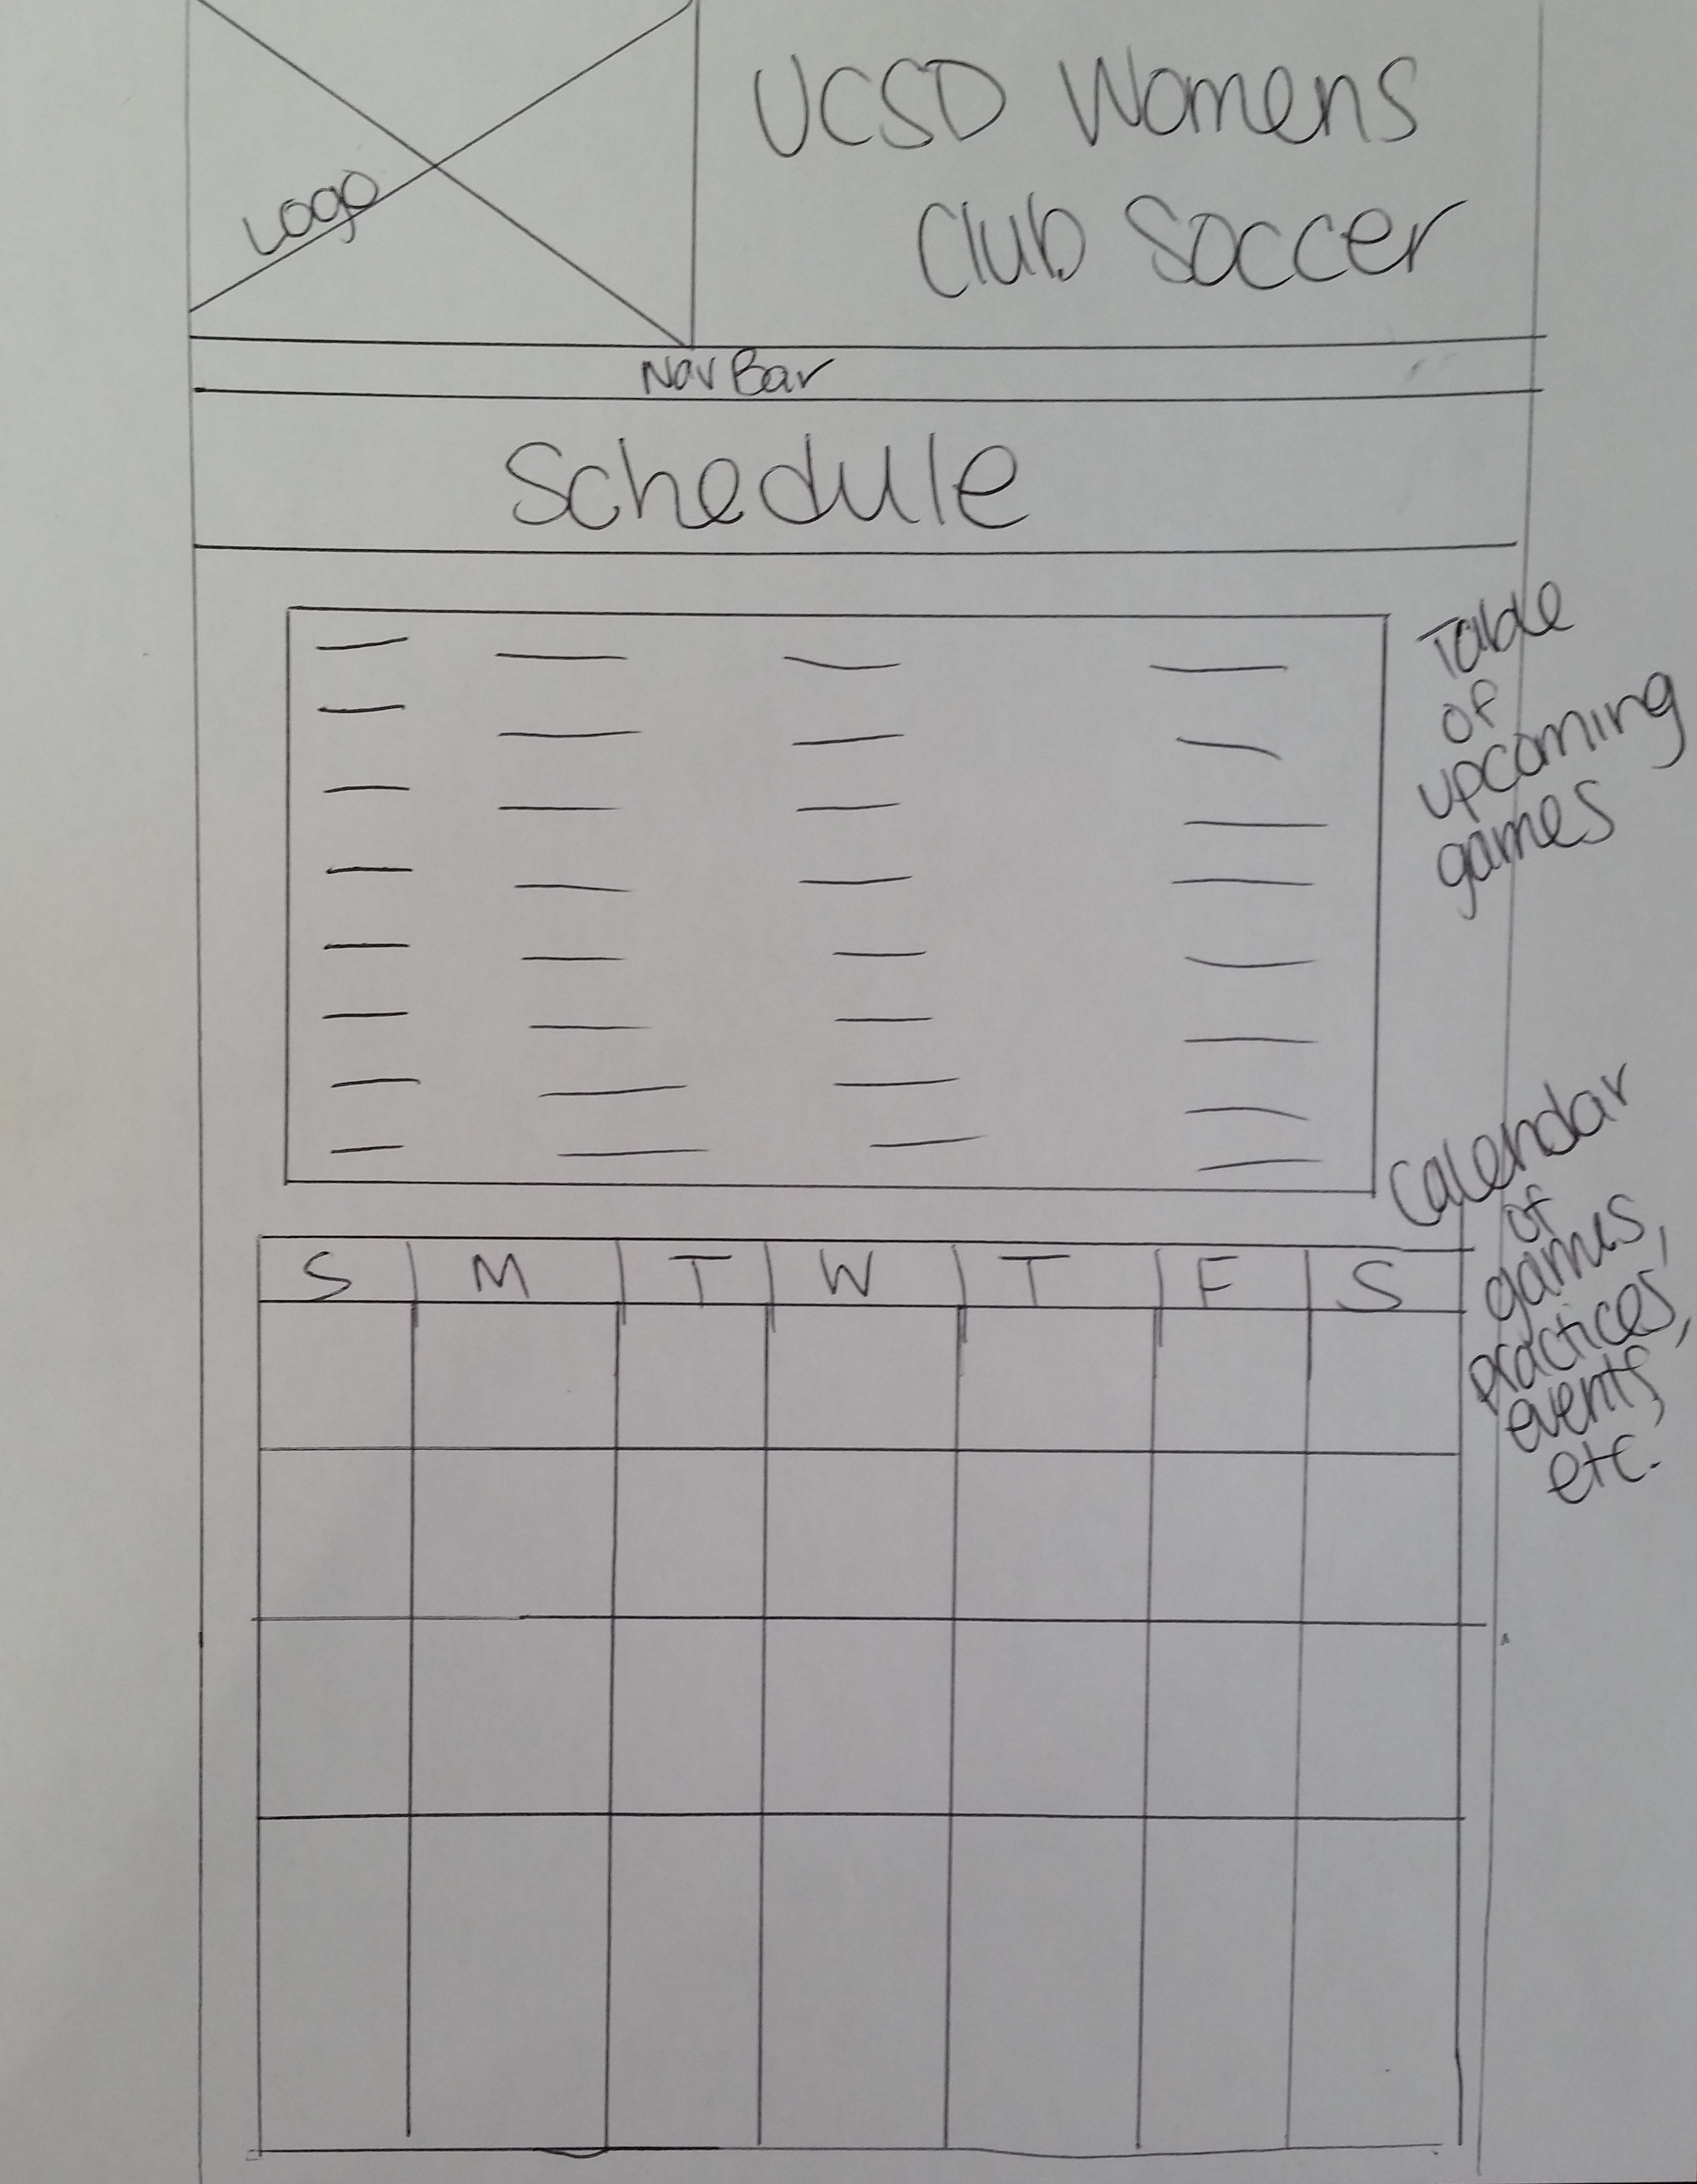 Logo
UCSD Womens
Club Soccer
Nav Bar
Schedule
Table
of
upcoming
games
S M T W T F S
Calendar
of
games,
practices,
events,
etc.